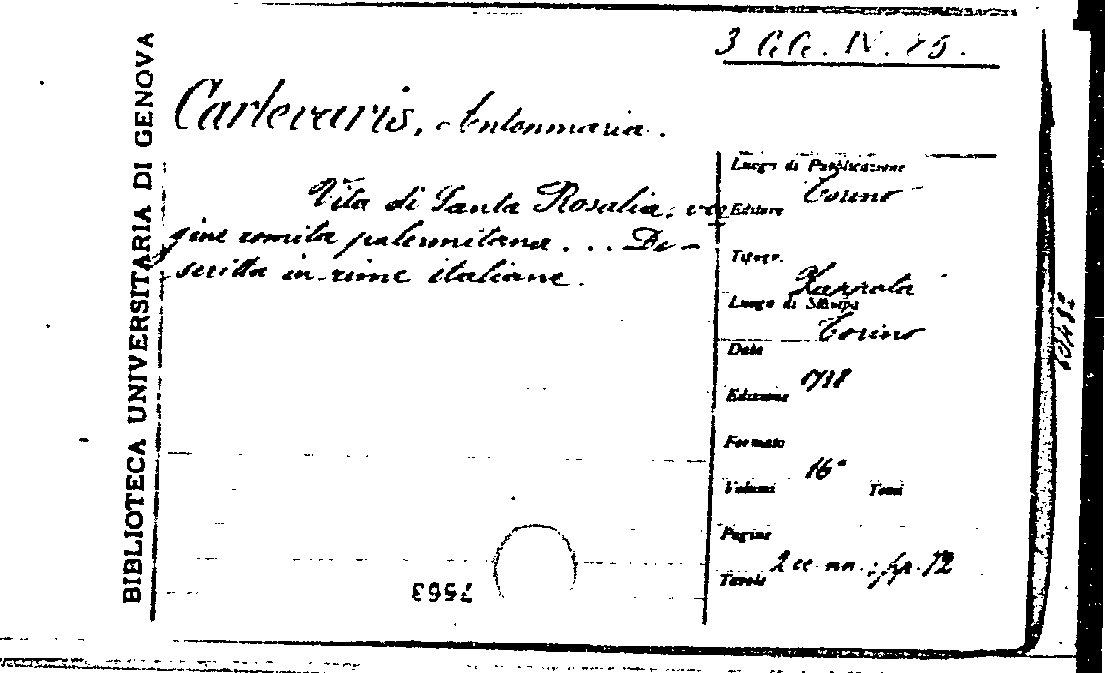 BIBLIOTECA UNIVERSITARIA DI GENOVA
3 GG. IV. 25.
Carlevaris, Antonmaria.
Vita di Santa Rosalia, ver
gine romita palermitana ... De-
scritta in rime italiane.
Luogo di Pubblicazione
Torino
Editore
Tipogr.
Zappata
Luogo di Stampa
Torino
Data
1718
Edizione
Formato
16°
Volumi Tomi
Pagine
2 cc. nn.; pp. 72
Tavole
7563